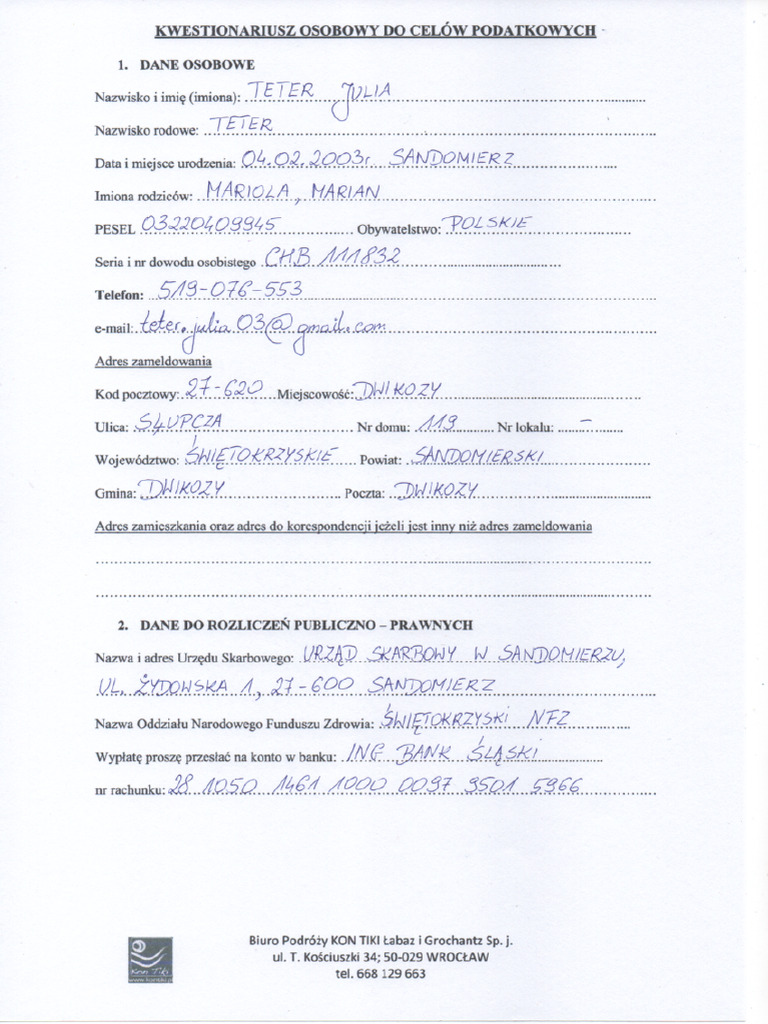 KWESTIONARIUSZ OSOBOWY DO CELÓW PODATKOWYCH
1. DANE OSOBOWE
Nazwisko i imię (imiona): TETER JULIA
Nazwisko rodowe: TETER
Data i miejsce urodzenia: 04.02.2003r SANDOMIERZ
Imiona rodziców: MARIOLA, MARIAN
PESEL 03220409945 Obywatelstwo: POLSKIE
Seria i nr dowodu osobistego CHB 111832
Telefon: 519-076-553
e-mail: teter.julia03@gmail.com
Adres zameldowania
Kod pocztowy: 27-620 Miejscowość: DWIKOZY
Ulica: SŁUPCZA Nr domu: 119 Nr lokalu: -
Województwo: ŚWIĘTOKRZYSKIE Powiat: SANDOMIERSKI
Gmina: DWIKOZY Poczta: DWIKOZY
Adres zamieszkania oraz adres do korespondencji jeżeli jest inny niż adres zameldowania
2. DANE DO ROZLICZEŃ PUBLICZNO – PRAWNYCH
Nazwa i adres Urzędu Skarbowego: URZĄD SKARBOWY W SANDOMIERZU,
UL. ŻYDOWSKA 1, 27-600 SANDOMIERZ
Nazwa Oddziału Narodowego Funduszu Zdrowia: ŚWIĘTOKRZYSKI NFZ
Wypłatę proszę przesłać na konto w banku: ING BANK ŚLĄSKI
nr rachunku: 28 1050 1461 1000 0097 9501 5966
Biuro Podróży KON TIKI Łabaz i Grochantz Sp. j.
ul. T. Kościuszki 34; 50-029 WROCŁAW
tel. 668 129 663
Kon Tiki